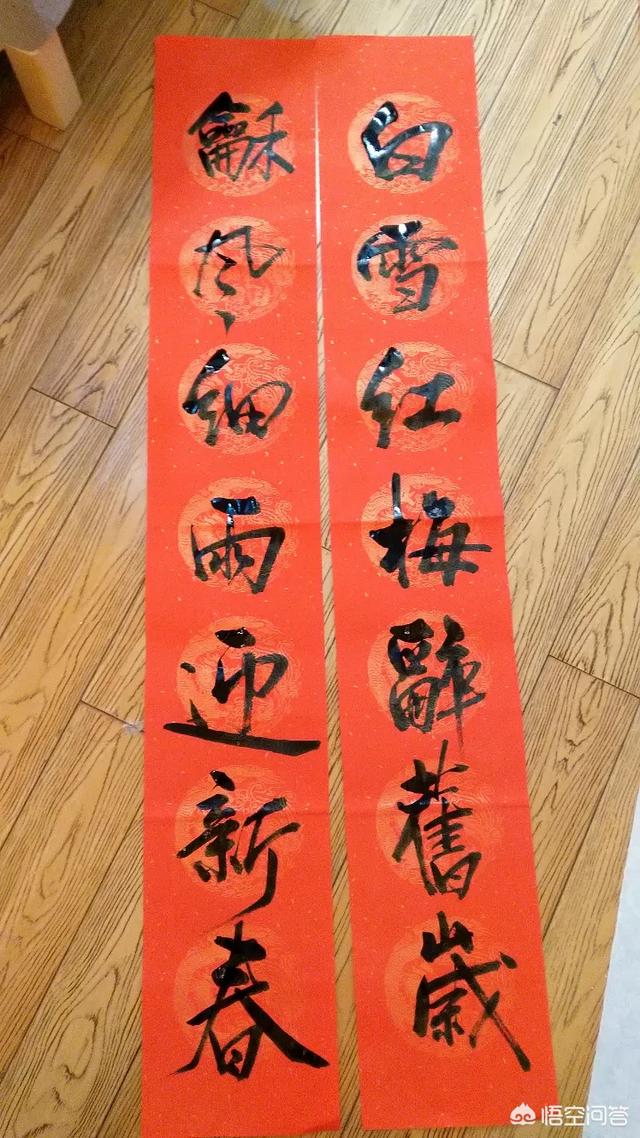 白雪红梅辭舊歲
龢风细雨迎新春
悟空问答